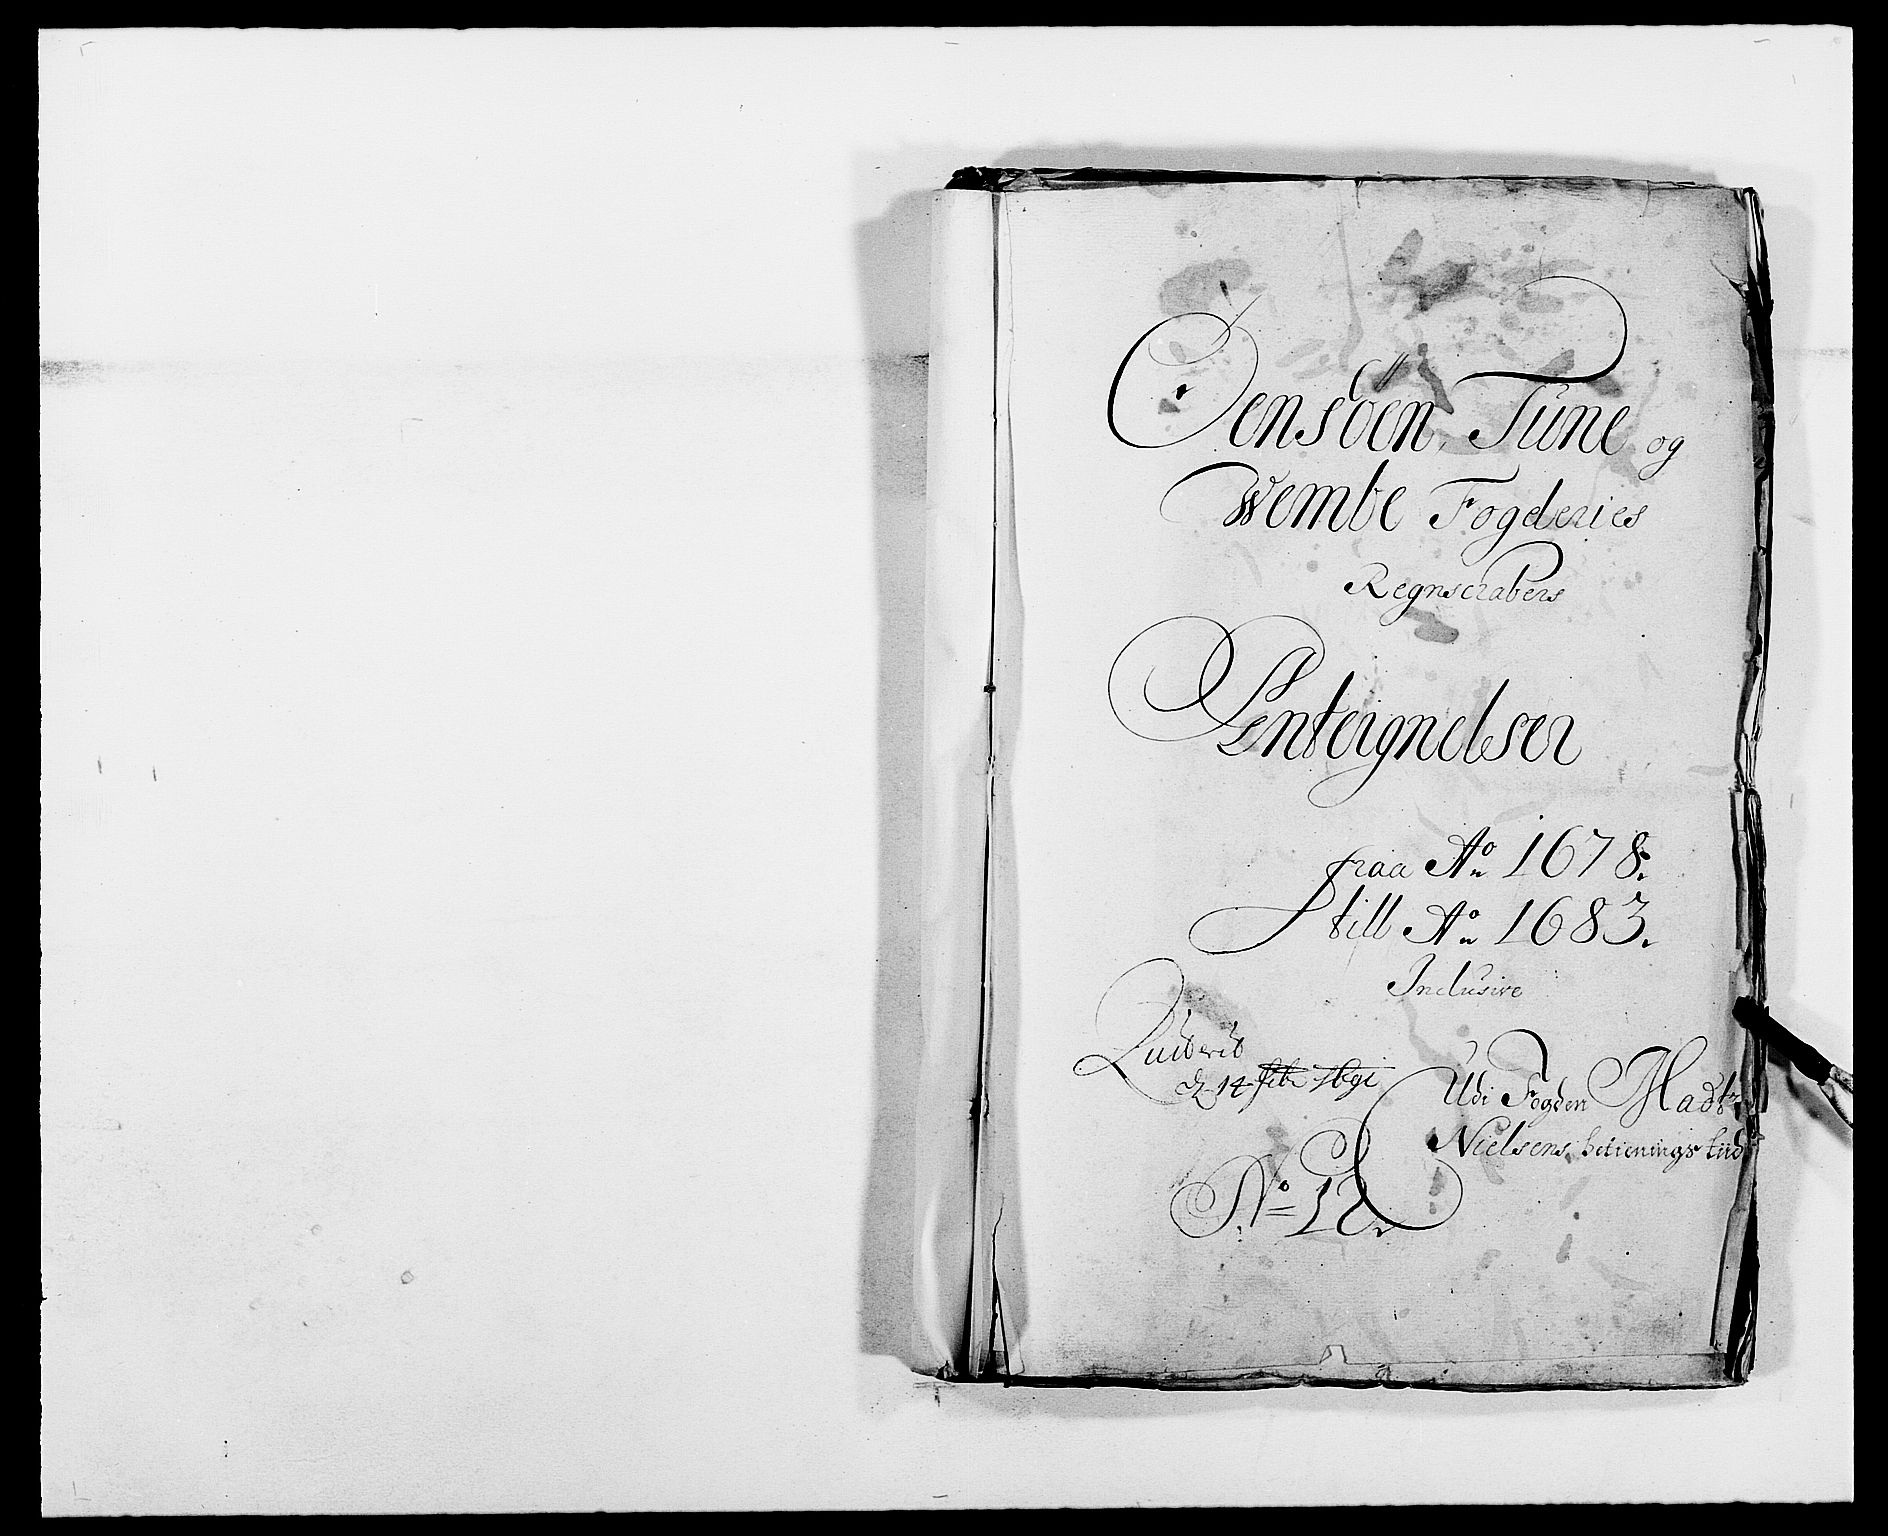 Oensöen, Tune og
Wembe Fogderies
Regnscabers
Anteignelser
fraa Ao 1678.
till Ao 1683.
Inclusive
Quiterit
d 14 feb 1691
Udi Fogden Madtz
Nielsens betienings tiid
No 12.